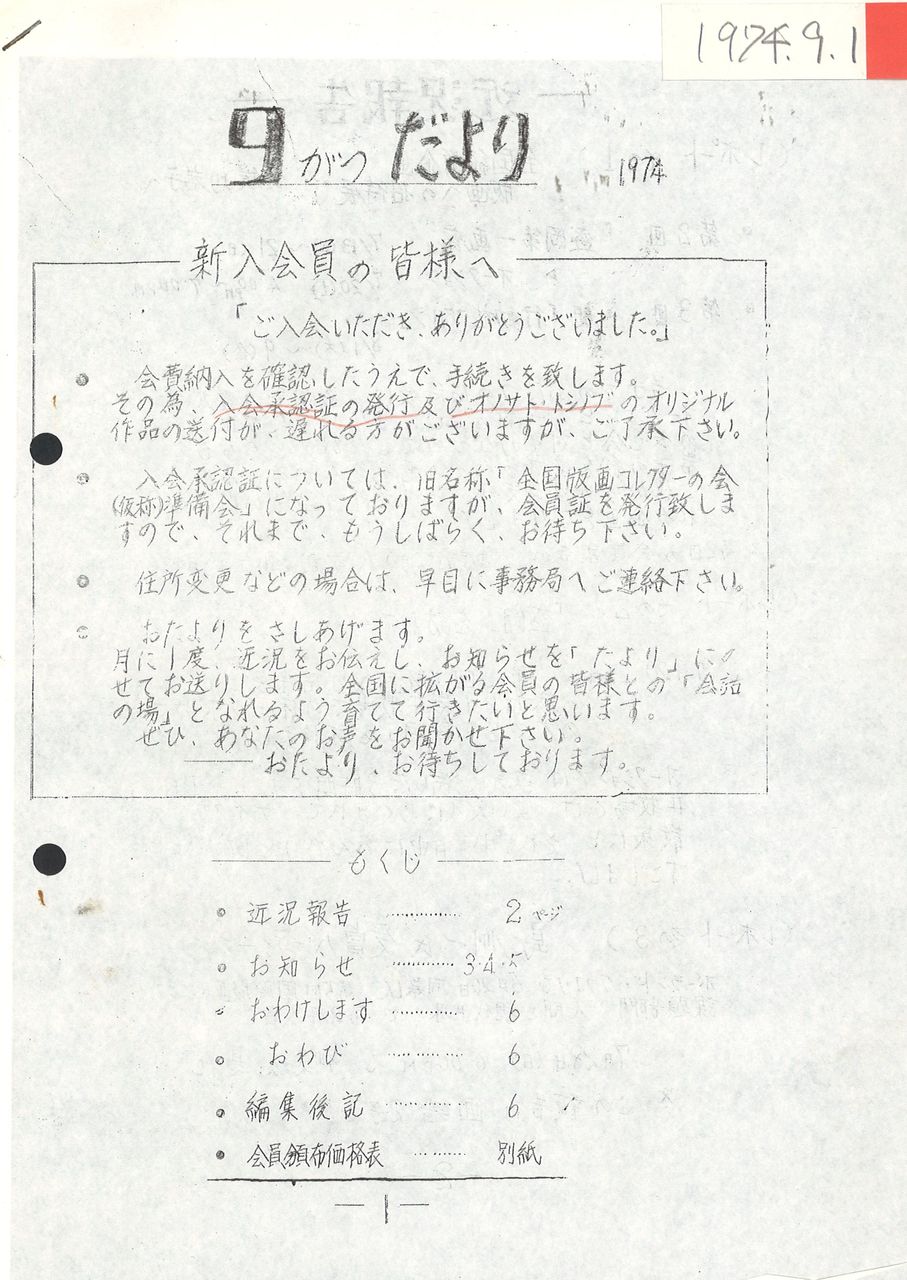 1974.9.1
9がつ だより 1974
新入会員の皆様へ
「ご入会いただき、ありがとうございました。」
● 会費納入を確認したうえで、手続きを致します。
その為、入会承認証の発行及びオノサト・トシノブのオリジナル
作品の送付が、遅れる方がございますが、ご了承下さい。
● 入会承認証については、旧名称「全国版画コレクターの会
(仮称)準備会」になっておりますが、会員証を発行致しま
すので、それまで、もうしばらく、お待ち下さい。
● 住所変更などの場合は、早目に事務局へご連絡下さい。
● おたよりをさしあげます。
月に1度、近況をお伝えし、お知らせを「たより」にの
せてお送りします。全国に拡がる会員の皆様との「会話
の場」となれるよう育てて行きたいと思います。
ぜひ、あなたのお声をお聞かせ下さい。
―― おたより、お待ちしております。
もくじ
● 近況報告 ………… 2ページ
● お知らせ ………… 3・4・5
● おわけします ………… 6
● おわび ………… 6
● 編集後記 ………… 6
● 会員頒布価格表 ……… 別紙
―1―